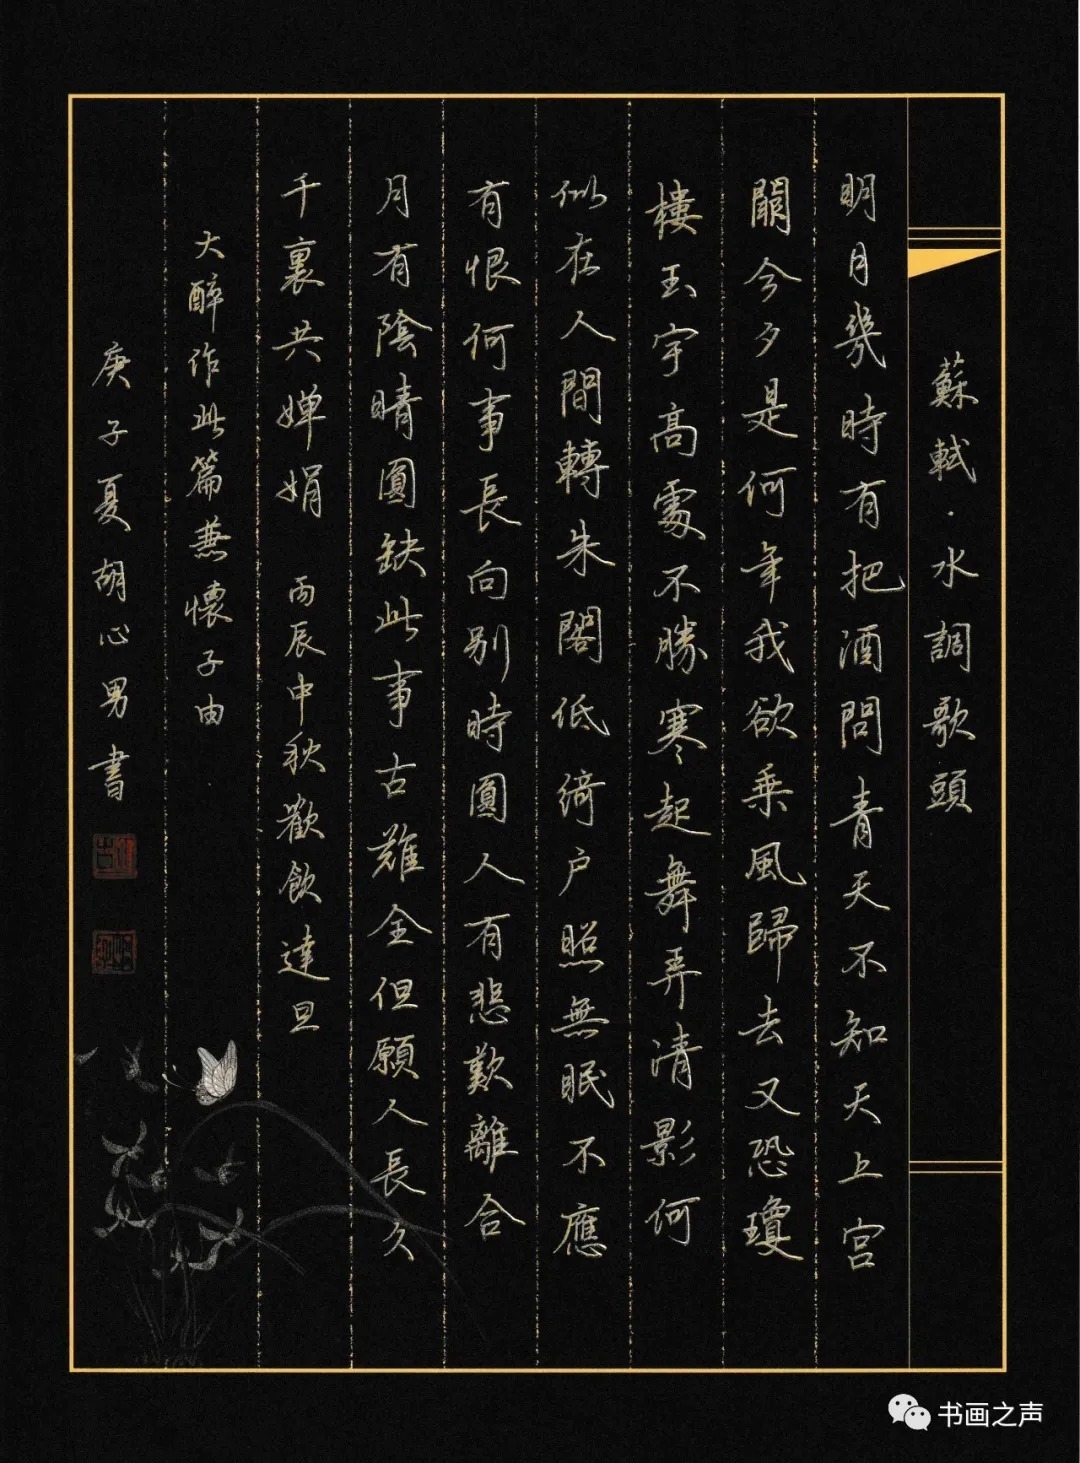 蘇軾·水調歌頭
明月幾時有把酒問青天不知天上宫
闕今夕是何年我欲乘風歸去又恐瓊
樓玉宇高處不勝寒起舞弄清影何
似在人間轉朱閣低綺户照無眠不應
有恨何事長向别時圓人有悲歎離合
月有陰晴圓缺此事古難全但願人長久
千裏共婵娟 丙辰中秋歡飲達旦
大醉作此篇兼懷子由
庚子夏胡心男書
书画之声